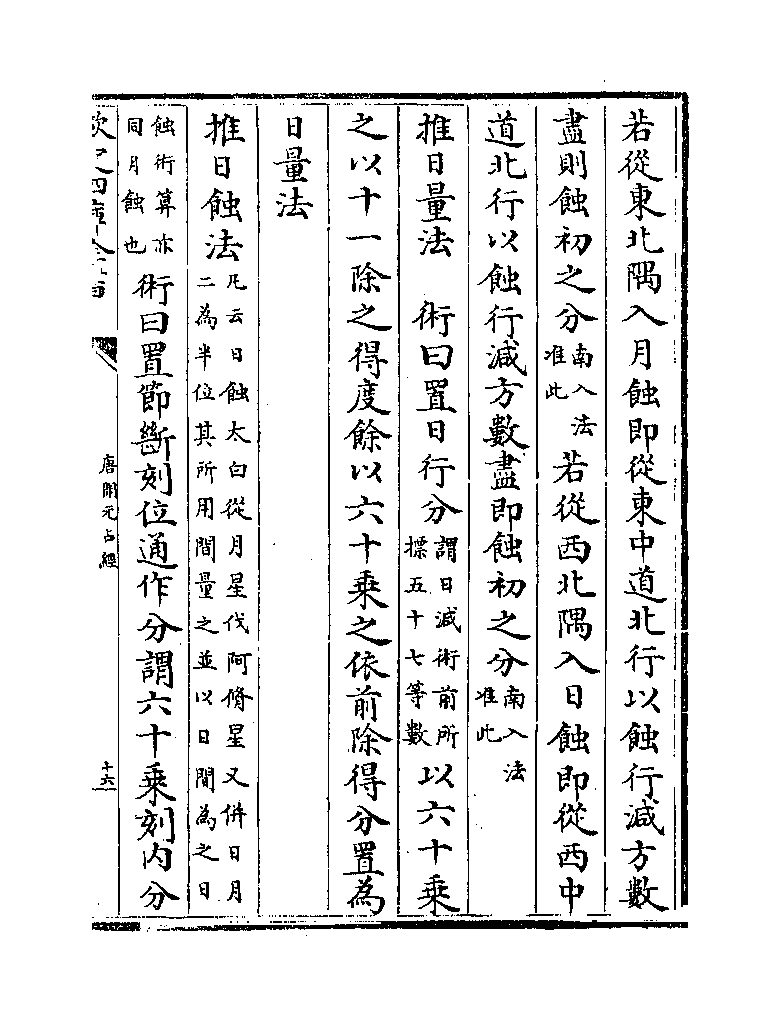 若從東北隅入月蝕即從東中道北行以蝕行減方數
盡則蝕初之分南入法准此若從西北隅入日蝕即從西中
道北行以蝕行減方數盡即蝕初之分南入法准此
推日量法　術曰置日行分謂日減術前所標五十七等數以六十乗
之以十一除之得度餘以六十乗之依前除得分置為
日量法
推日蝕法凡云日蝕太白從月星伐阿脩星又併日月二為半位其所用間量之並以日間為之日
蝕術算亦同月蝕也術曰置節斷刻位通作分謂六十乗刻内分
唐開元占經
十六